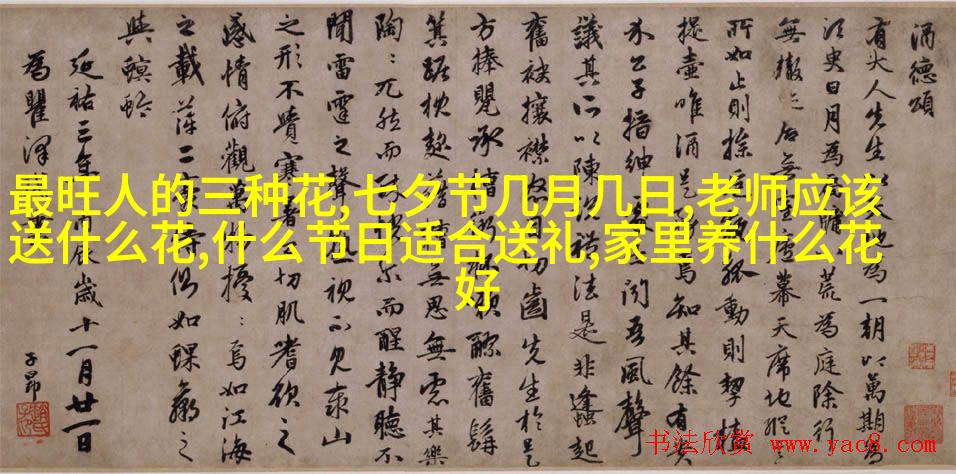 酒德頌
有大人先生為一朝以萬期為
須臾日月為荒為庭除行
無轍迹居無室幕天席地縱
所如止則操觚動則挈榼
提壺唯酒是焉知其餘有貴
介公子搢紳聞吾風聲
議其所以陳說禮法是非鋒起
奮袂攘襟切齒先生於是
方捧罌承槽漱醪奮髯
箕踞枕麴無思無慮其樂
陶〻兀然而爾而醒靜聽不
聞雷霆之聲視不見泰山
之形不覺寒暑切肌嗜欲之
感情俯觀萬擾〻焉如江海
之載萍二豪侍如蜾蠃之
與螟蛉
延祐三年歲十一月廿一日
為瞿澤
子昂
最旺人的三种花,七夕节几月几日,老师应该
送什么花,什么节日适合送礼,家里养什么花
好
书法欣赏 www.yac8.com